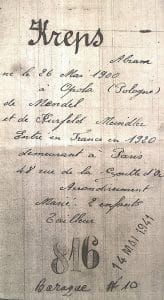 Kreps
Abram
né le 26 Mai 1900
à Opola (Pologne)
de Mendel
et de Hirsfeld Mindler
Entré en France en 1920
demeurant à Paris
48 rue de la Goutte d'Or
Arrondissement
Marié 2 enfants
Tailleur
816
14 MAI 1941
Baraque N 10